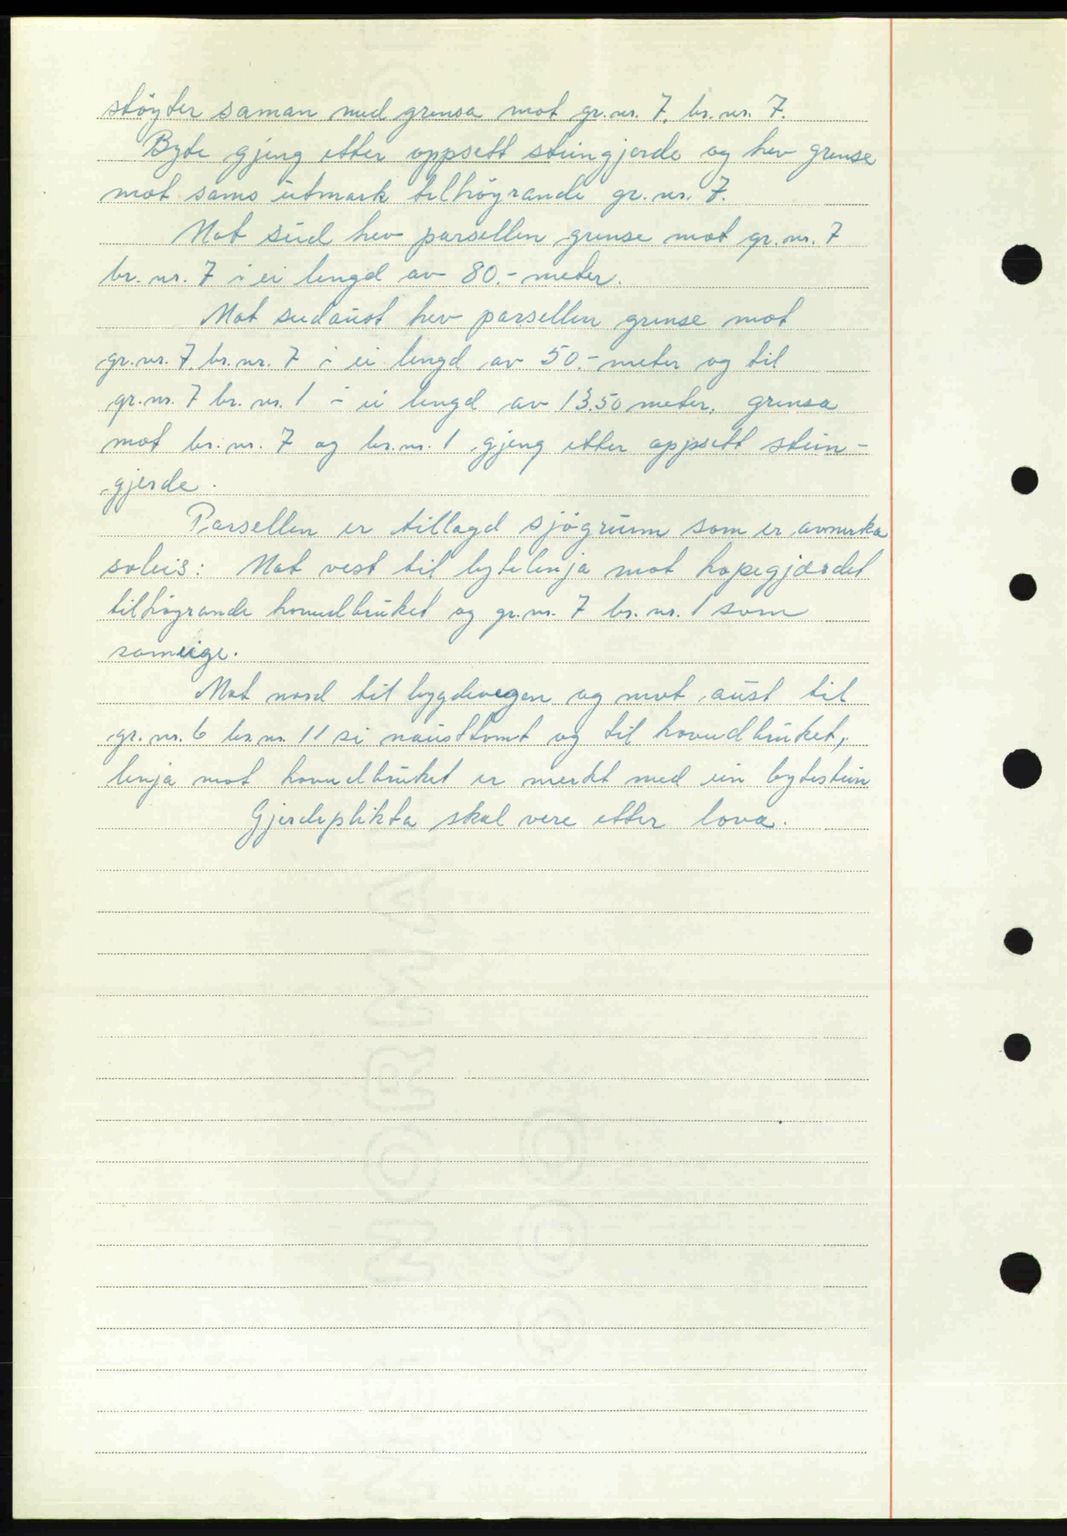 støyter saman med grensa mot gr.nr. 7, br.nr. 7.
Byte gjeng etter oppsett steingjerde og hev grense
mot sams utmark tilhøyrande gr. nr. 7.
Mot sud hev parsellen grense mot gr. nr. 7
br. nr. 7 i ei lengd av 80.- meter.
Mot sudaust hev parsellen grense mot
gr.nr. 7, br. nr. 7 i ei lengd av 50.- meter og til
gr. nr. 7 br. nr. 1 i ei lengd av 13,50 meter, grensa
mot br. nr. 7 og br. nr. 1 gjeng etter oppsett stein-
gjerde.
Parsellen er tillagd sjøgrunn som er avmerka
soleis: Mot vest til bytelinja mot hopegjærdet
tilhøyrande hovudbruket og gr. nr. 7 br. nr. 1 som
sameige.
Mot nord til bygdevegen og mot aust til
gr. nr. 6 br. nr. 11 si nausttomt og til hovudbruket,
linja mot hovudbruket er merkt med ein bytestein
Gjerdeplikta skal vere etter lova.
NORMAL